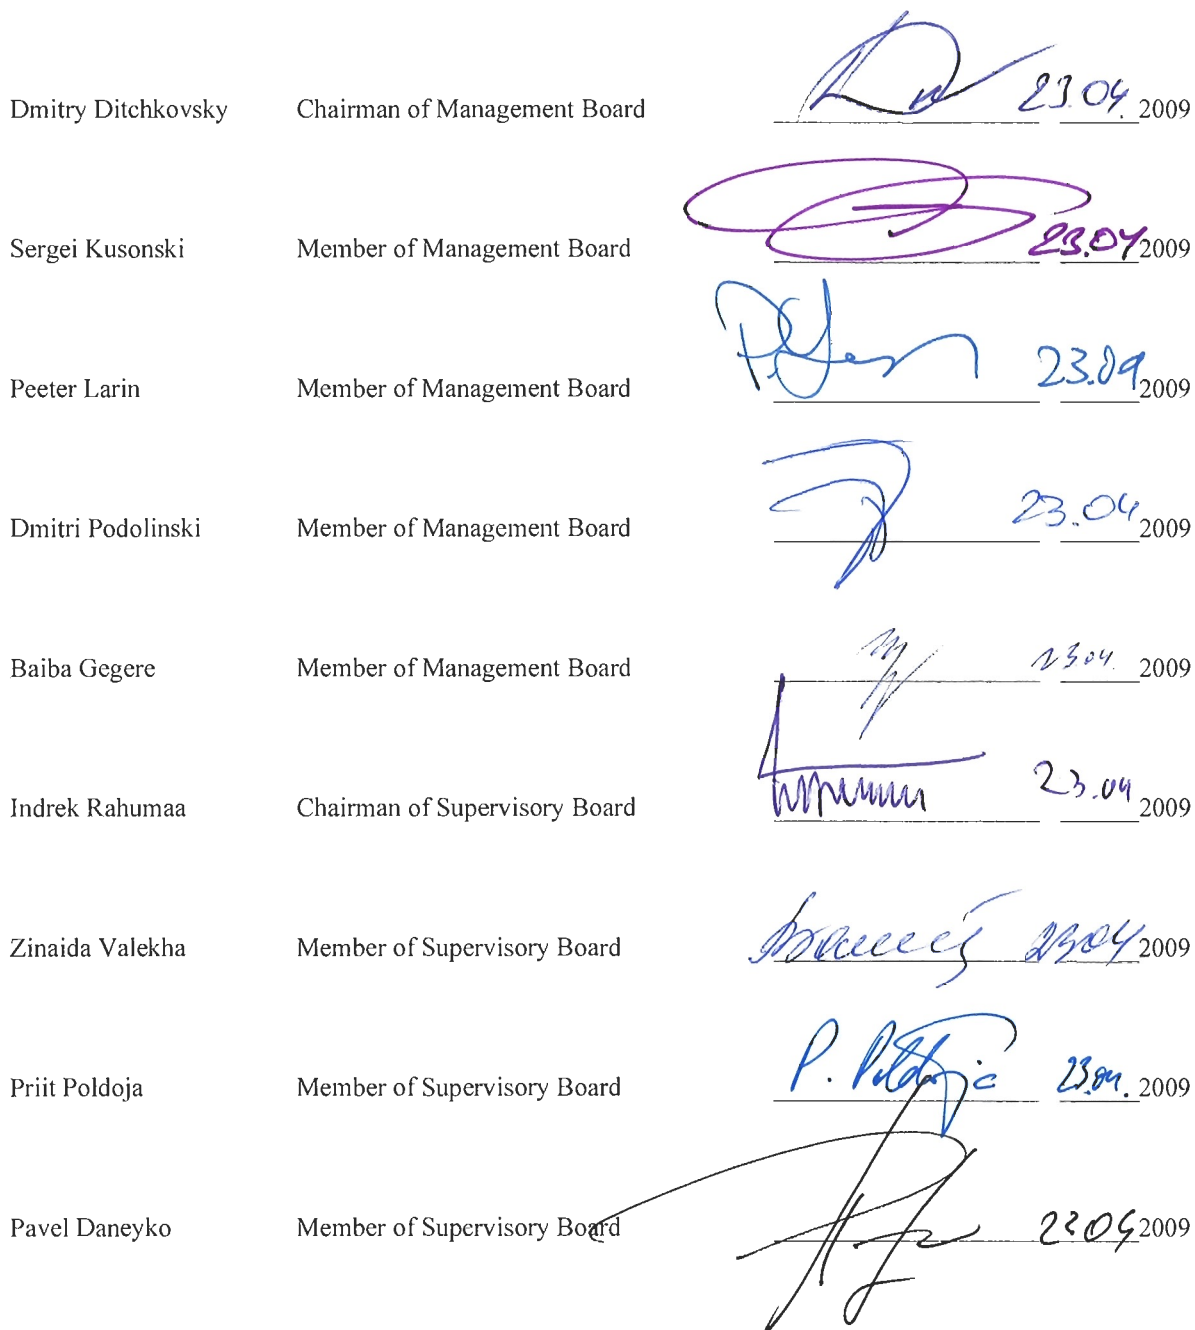 Dmitry Ditchkovsky Chairman of Management Board 23.04. 2009
Sergei Kusonski Member of Management Board 23.04 2009
Peeter Larin Member of Management Board 23.04 2009
Dmitri Podolinski Member of Management Board 23.04 2009
Baiba Gegere Member of Management Board 23.04. 2009
Indrek Rahumaa Chairman of Supervisory Board 23.04 2009
Zinaida Valekha Member of Supervisory Board 23.04 2009
Priit Poldoja Member of Supervisory Board P. Poldoja 23.04. 2009
Pavel Daneyko Member of Supervisory Board 2009